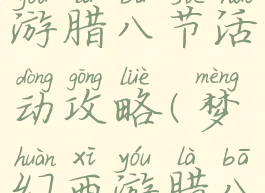 yóu là bā jié huó
游腊八节活
dòng gōng lüè mèng
动攻略(梦
huàn xī yóu là bā
幻西游腊八